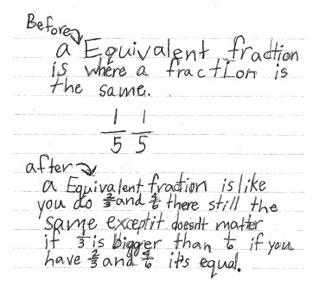 Before
a Equivalent fraction
is where a fraction is
the same.
1/5 1/5
after
a Equivalent fraction is like
you do 2/3 and 4/6 there still the
same except it doesn't matter
if 1/3 is bigger than 1/6 if you
have 2/3 and 4/6 it's equal.